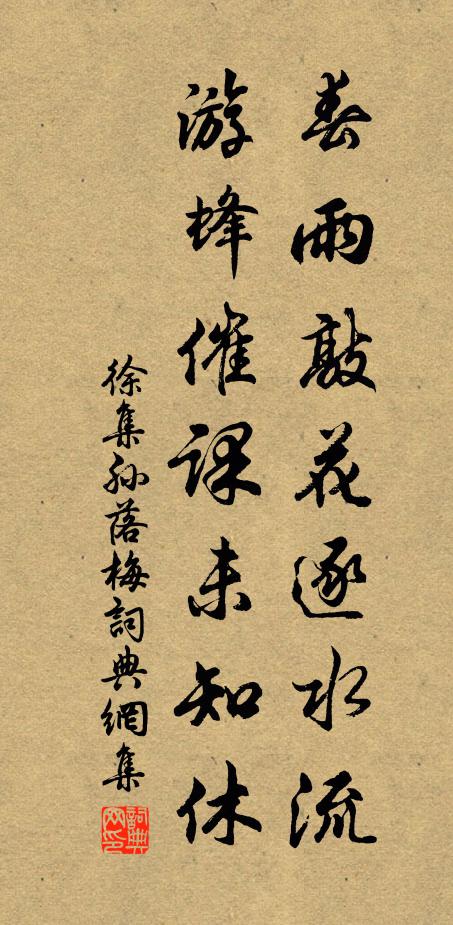 春雨敲花逐水流
游蜂催課未知休
徐集孙落梅詞典網集
詞典网印